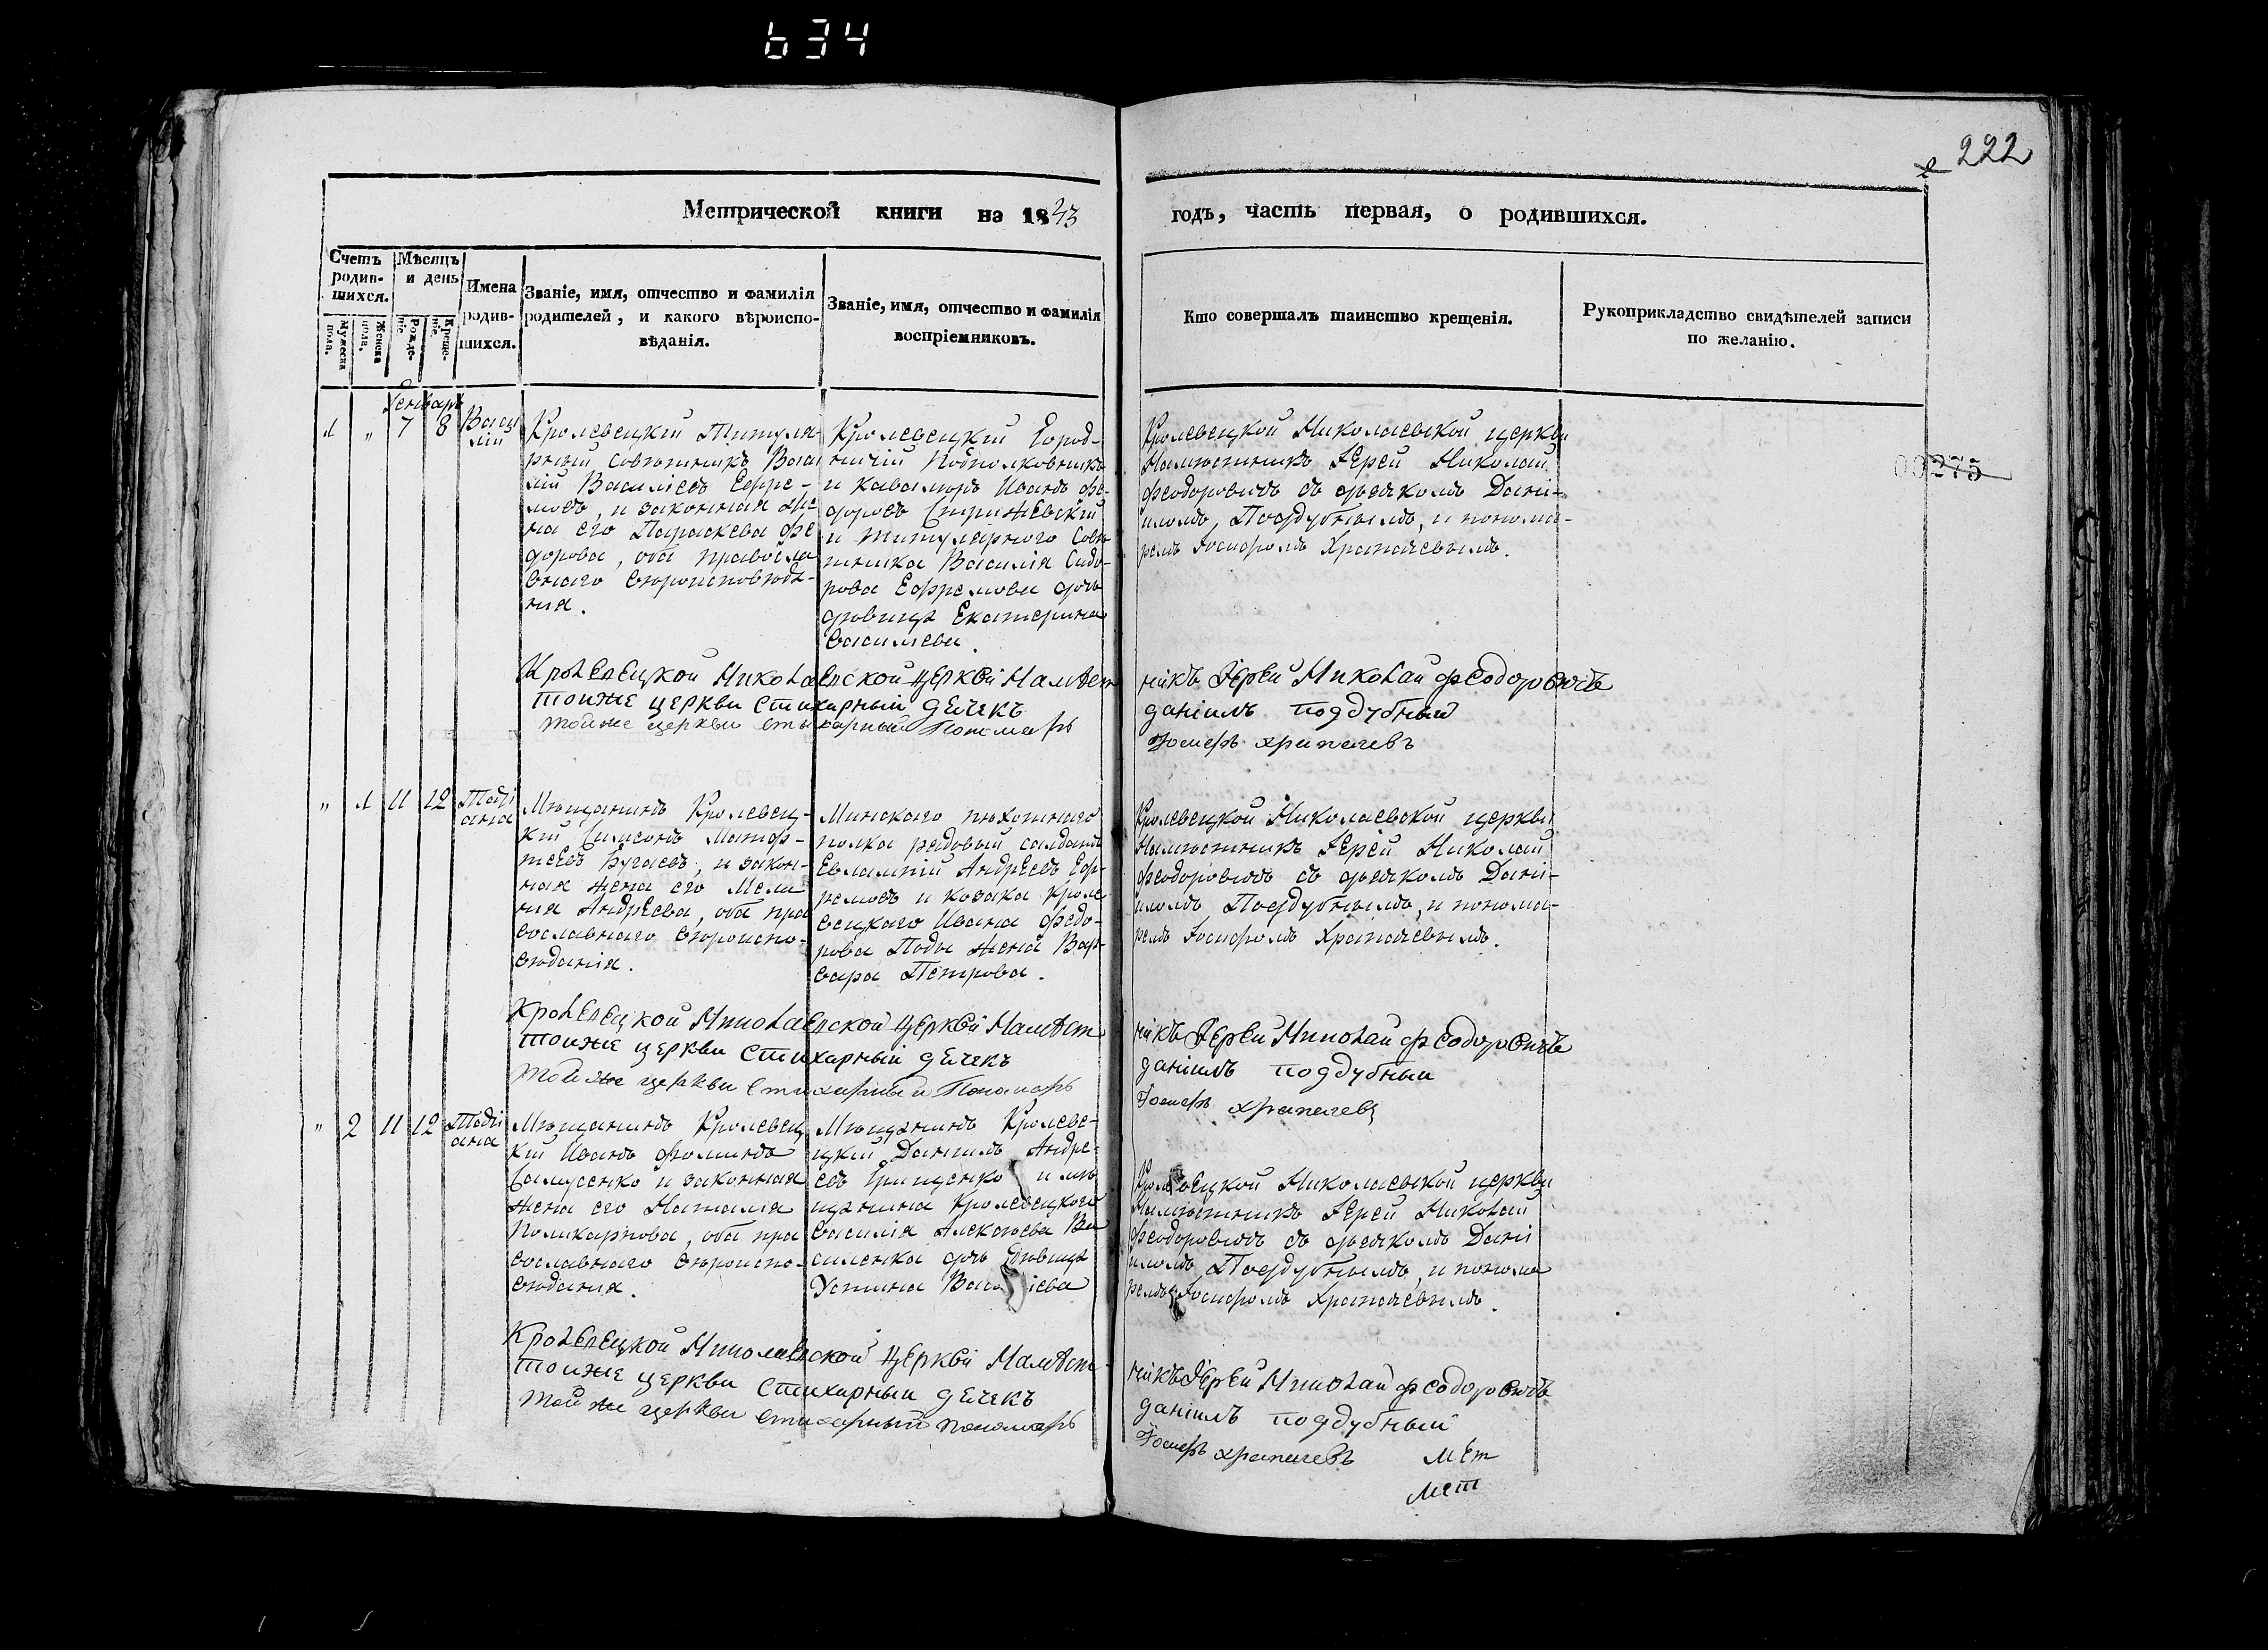 634
222
Метрической книги на 1843
годъ, часть первая, о родившихся.
Счетъ родив-шихся.
Мужеска пола.
Женска пола.
Мѣсяцъ и день
Рожде-нiе.
Креще-нiе.
Имена родив-шихся.
Званiе, имя, отчество и фамилiя
родителей, и какого вѣроиспо-
вѣданiя.
Званiе, имя, отчество и фамилiя
воспрiемниковъ.
Кто совершалъ таинство крещенiя.
Рукоприкладство свидѣтелей записи
по желанiю.
00275
Генварь
1 „ 7 8 Васи
лiй
Кролевецкiй Титуля-
рный Совѣтникъ Васи
лiй Василiевъ Ефре-
мовъ, и законная же-
на его Параскева Фе
дорова, оба правосла
внаго вѣроисповѣда-
нiя.
Кролевецкiй Город-
ничiй Подполковникъ
и Кавалеръ Иванъ Фе-
доровъ Стрижевскiй
и титулярного Совѣ
тника Василiя Сидо-
рова Ефремова дочь
дѣвица Екатерина
Васильева.
Кролевецкой Николаевской церкви
Намѣстникъ Iерей Николай
Феодоровичъ съ дьячкомъ Данi-
иломъ Поддубнымъ, и понома-
ремъ Iосифомъ Храпачевымъ.
Кролевецкой Николаевской церкви Намѣст
никъ Iерей Николай Феодоровичъ
тойже церкви стихарный дячекъ
данiилъ поддубный
тойже церкви стихарный Пономарь
Iосифъ храпачевъ
„ 1 11 12 Татi
ана
Мѣщанинъ Кролевец-
кiй Симеонъ Матѳ-
ѣевъ Бугаевъ, и закон-
ная жена его Мела
нiя Андреева, оба пра
вославнаго вѣроиспо-
вѣданiя.
Минскаго пѣхотнаго
полка рядовый салдатъ
Евлампiй Андреевъ Еф-
ремовъ и козака Кроле
вецкаго Ивана Федо-
рова Поды жена Вар-
вара Петрова.
Кролевецкой Николаевской церкви
Намѣстникъ Iерей Николай
Феодоровичъ съ дьячкомъ Данi-
иломъ Поддубнымъ, и понома-
ремъ Iосифомъ Храпачевымъ.
Кролевецкой Николаевской церкви Намѣст
никъ Iерей Николай Феодоровичъ
тойже церкви стихарный дячекъ
данiилъ поддубный
тойже церкви стихарный Пономарь
Iосифъ храпачевъ
„ 2 11 12 Татi
ана
Мѣщанинъ Кролевец
кiй Иванъ Ѳоминъ
Самусенко и законная
жена его Наталiя
Поликарпова, оба пра
вославнаго вѣроиспо-
вѣданiя.
Мѣщанинъ Кролеве-
цкiй Данiилъ Андре-
евъ Грищенко и мѣ
щанина Кролевецкого
Василiя Алексѣева Ва
силенка дочь дѣвица
Устина Васильева
Кролевецкой Николаевской церкви
Намѣстникъ Iерей Николай
Феодоровичъ съ дьячкомъ Данi
иломъ Поддубнымъ, и понома
ремъ Iосифомъ Храпачевымъ.
Кролевецкой Николаевской церкви Намѣст-
никъ Iерей Николай Феодоровичъ
тойже церкви стихарный дячекъ
данiилъ поддубный
тойже церкви стихарный пономарь
Iосифъ храпачевъ
Мет
мет